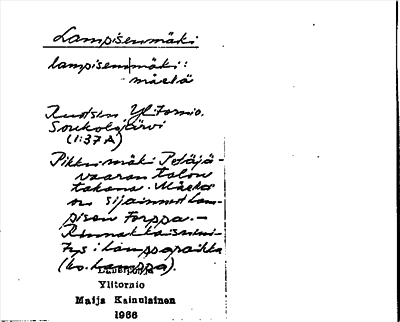 Lampisenmäki
lampisenmäki:
mäelä
Ruotsin Ylitornio.
Soukolojärvi
(1:37A)
Pikku mäki Petäjä-
vaaran talon
takana. Mäellä
on sijainnut Lam-
pisen torppa. –
Rinnakkaisnimi-
tys: lamppaikka
(ks. Lamppa).
Ylitornio
Maija Kainulainen
1966